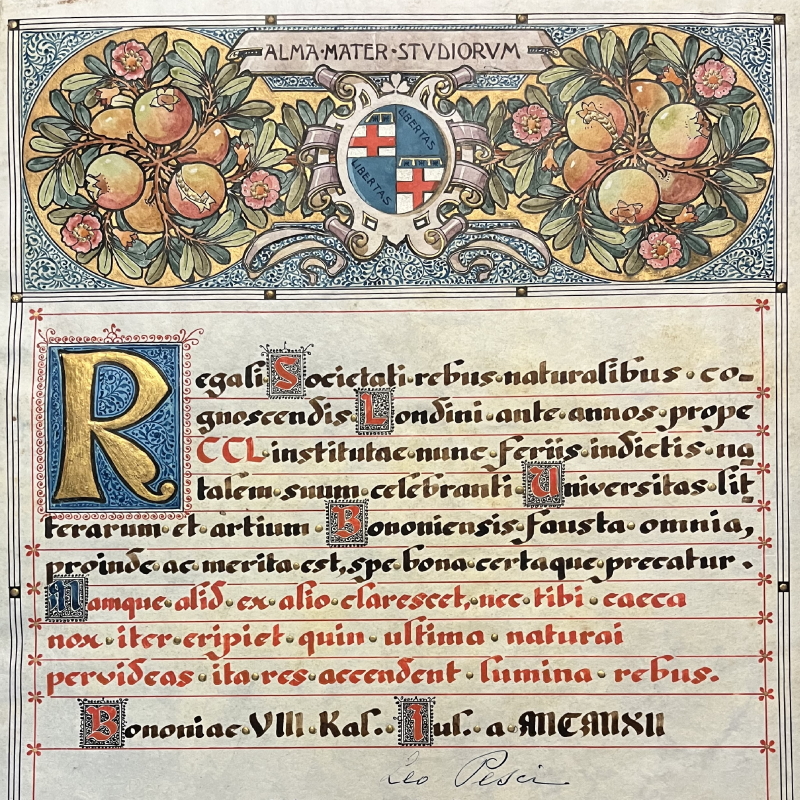 ALMA·MATER·STVDIORVM
LIBERTAS
LIBERTAS
Regali·Societati·rebus·naturalibus·co-
gnoscendis·Londini·ante·annos·prope
CCL·institutae·nunc·feriis·indictis·na
talem·suum·celebranti·Universitas·lit-
terarum·et·artium·Bononiensis·fausta·omnia,
proinde·ac·merita·est,spe·bona·certaque·precatur·
Namque·alid·ex·alio·clarescet,·nec·tibi·caeca
nox·iter·eripiet·quin·ultima·naturai
pervideas·ita·res·accendent·lumina·rebus.
Bononiae·VIII·Kal.·Iul.·a·MCMXII
Leo Pesci